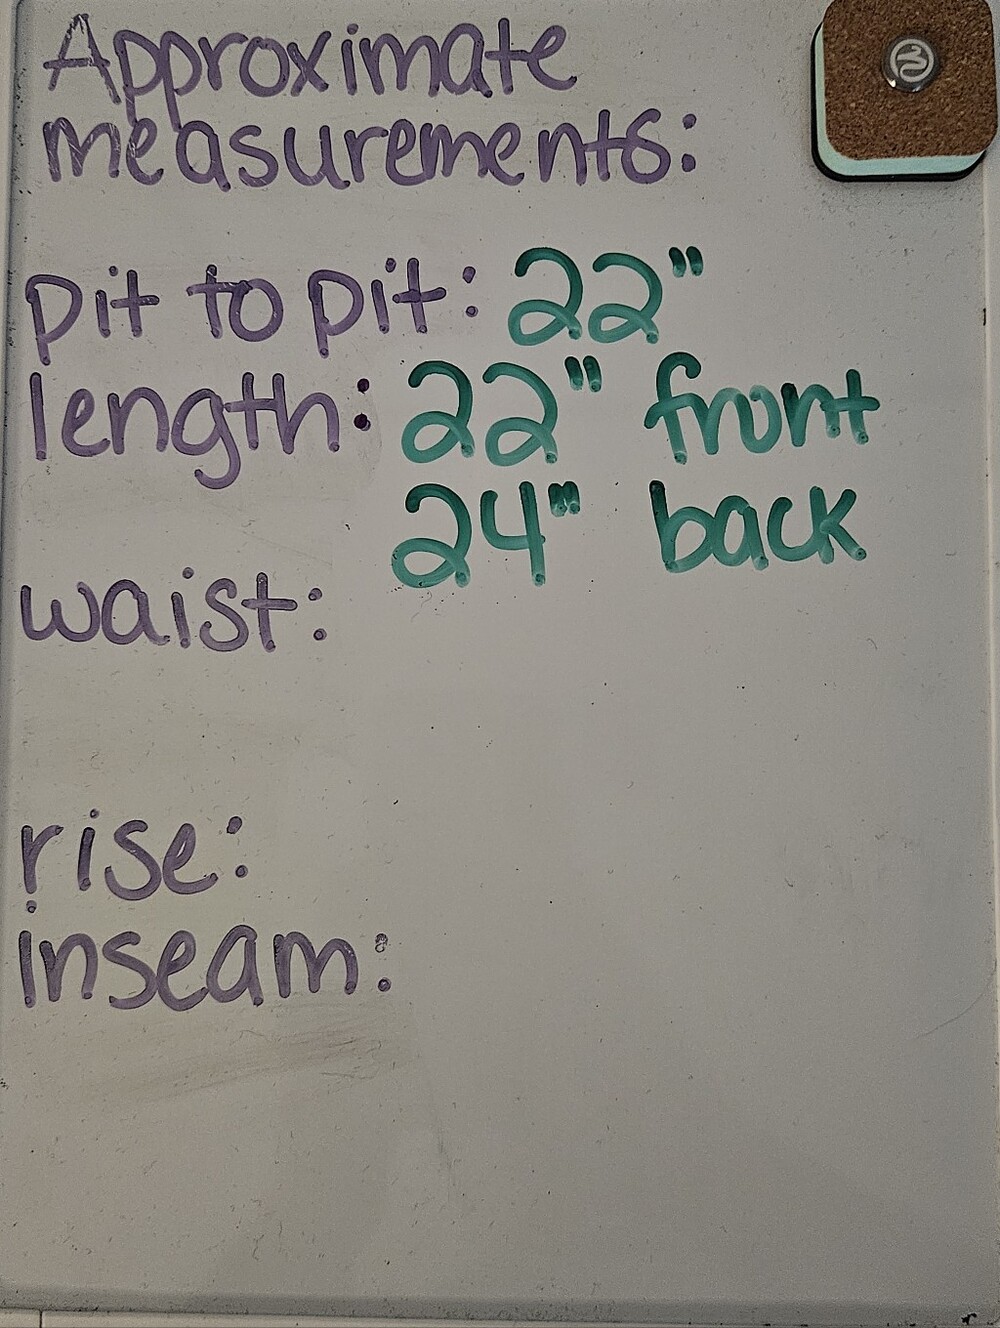 Approximate
measurements:
pit to pit: 22"
length: 22" front
24" back
waist:
rise:
inseam: